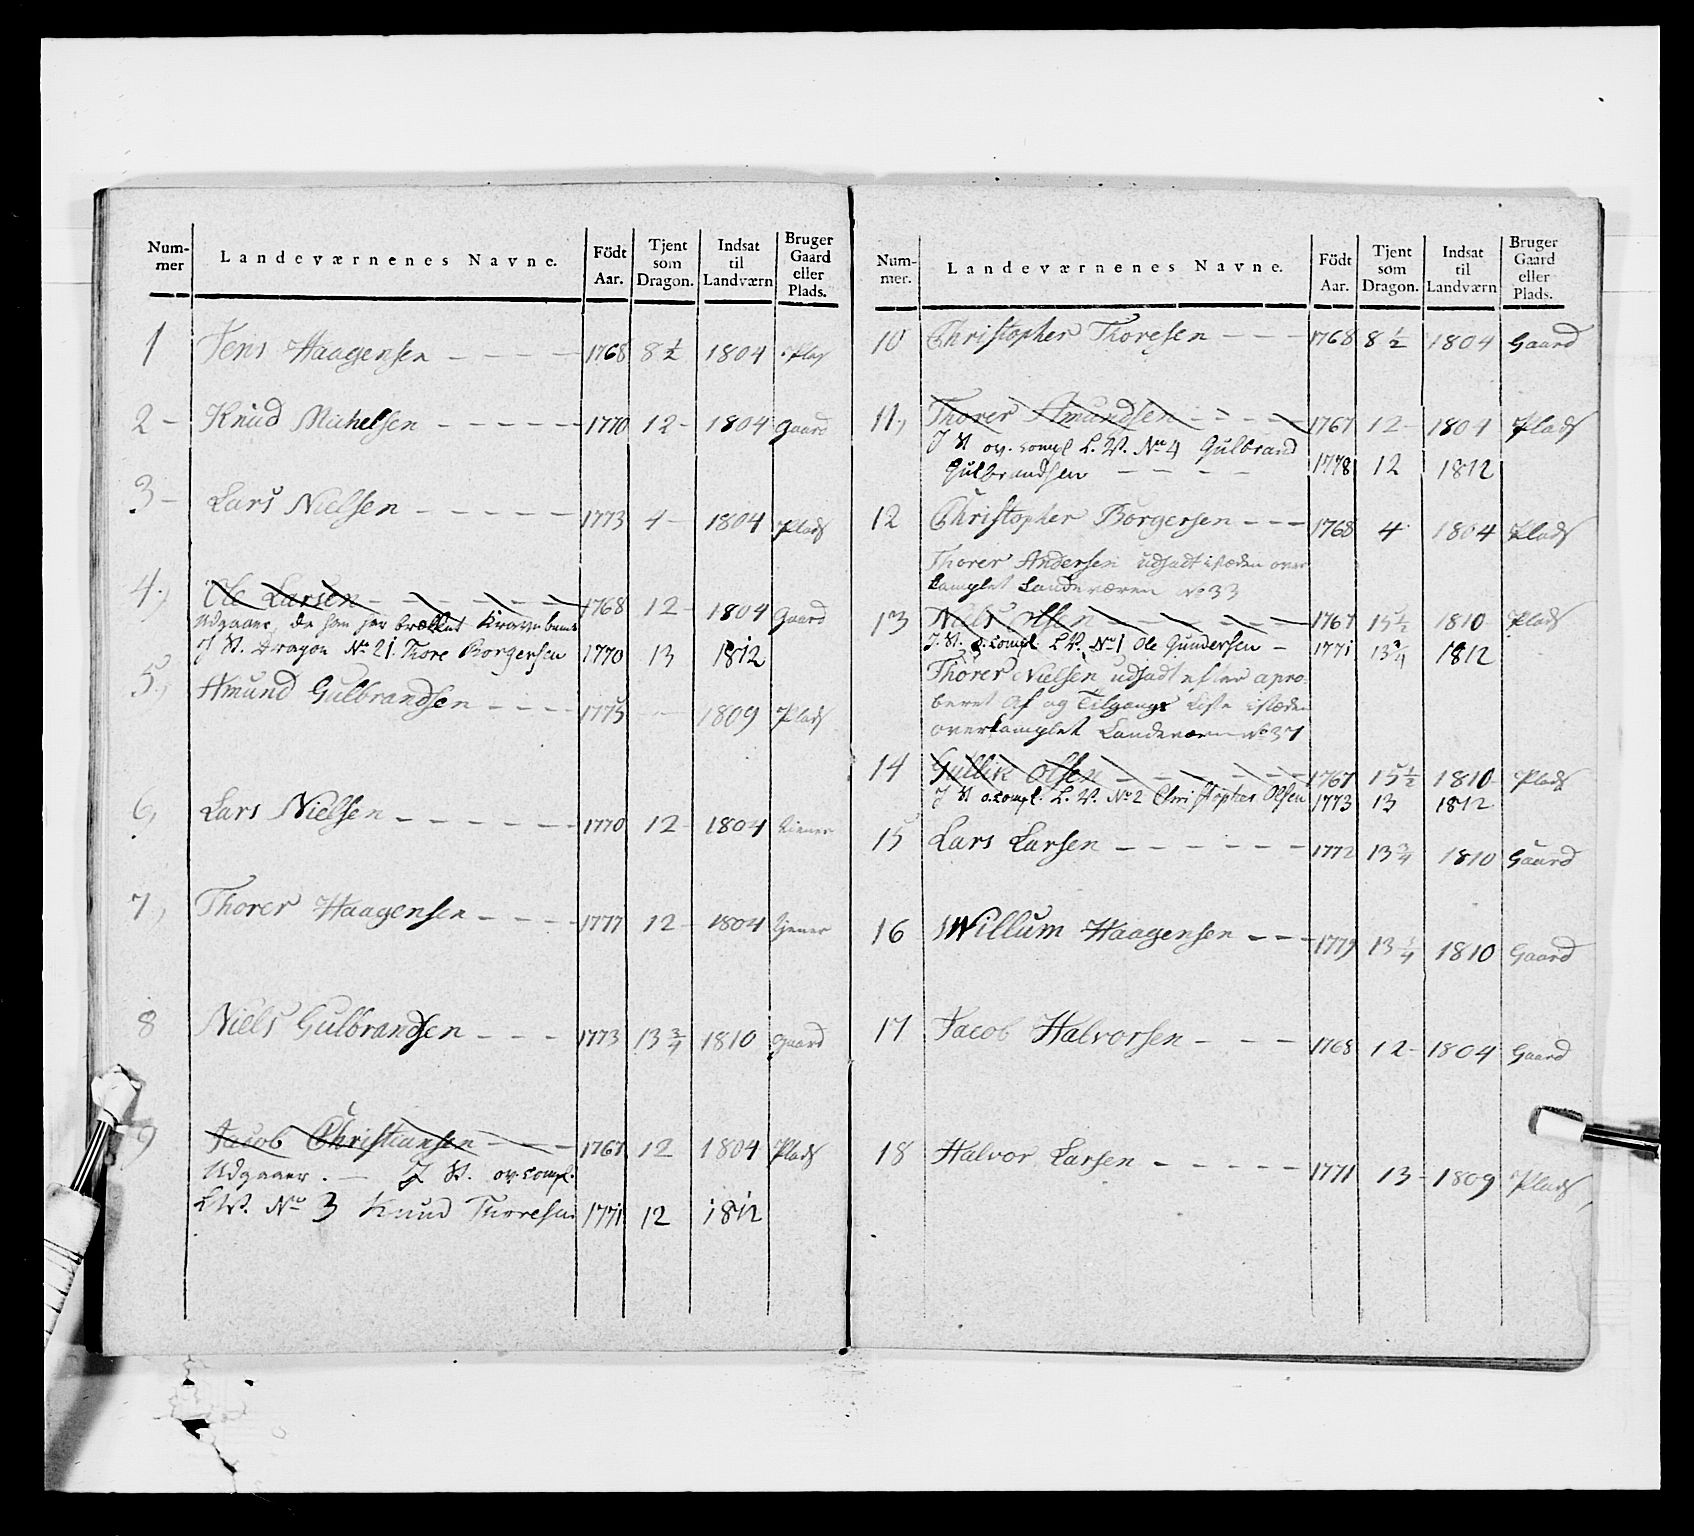 Num-mer Landeværnenes Navne. Födt Aar. Tjent som Dragon. Indsat til Landværn Bruger Gaard eller Plads.
1 Jens Haagensen - - - - 1768 8 1/2 1804 Plas
2 - Knud Michelsen - - - - - 1770 12 - 1804 Gaard
3 - Lars Nielsen - - - - - 1773 4 - 1804 Plads
4, Ole Larsen - - - - - - 1768 12 - 1804 Gaard
Udgaaer, da han har brækket Kravebenet
J St. Dragon No 21. Thore Borgersen 1770 13 1812
5, Amund Gulbrandsen - - - - 1775 - 1809 Plads
6, Lars Nielsen - - - - - - 1770 12 - 1804 tiener
7, Thorer Haagensen - - - - 1777 12 - 1804 tjener
8 Niels Gulbrandsen - - - 1773 13 3/4 1810 Gaard
9 Jacob Christiansen - - - 1767 12 1804 Plads
Udgaaer. - J St. ov. compl.
L.W. No 3 Knud Thoresen 1771 12 1812
Num-mer. Landeværnenes Navne. Födt Aar. Tjent som Dragon. Indsat til Landværn Bruger Gaard eller Plads.
10 Christopher Thoresen - - - 1768 8 1/2 1804 Gaard
11, Thorer Amundsen - - - - 1767 12 - 1804 Plads
J St ov. compl L.V. No 4 Gulbrand
Gulbrandsen - - - - 1778 12 1812
12 Christopher Borgersen - - - 1768 4 1804 Plads
Thorer Andersen udsadt istæden over
Complet Landeværen No 33
13 Niels Olsen - - - - - - 1767 15 1/2 1810 Plads
J St. o. compl. L.V. No 1 Ole Gundersen - 1771 13 3/4 1812
Thorer Nielsen udsadt efter apro-
beret Af og Tilgangs Liste istæden
overcomplet Landeværn No 37
14 Gullik Olsen - - - - - - 1767 15 1/2 1810 Plads
J St o. compl. L.V. No 2 Christopher Olsen 1773 13 1812
15 Lars Larsen - - - - - - 1772 13 3/4 1810 Gaard
16 Willum Haagensen - - - 1779 13 3/4 1810 Gaard
17 Jacob Halvorsen - - - 1768 12 - 1804 Gaard
18 Halvor Larsen - - - - - 1771 13 - 1809 Plads